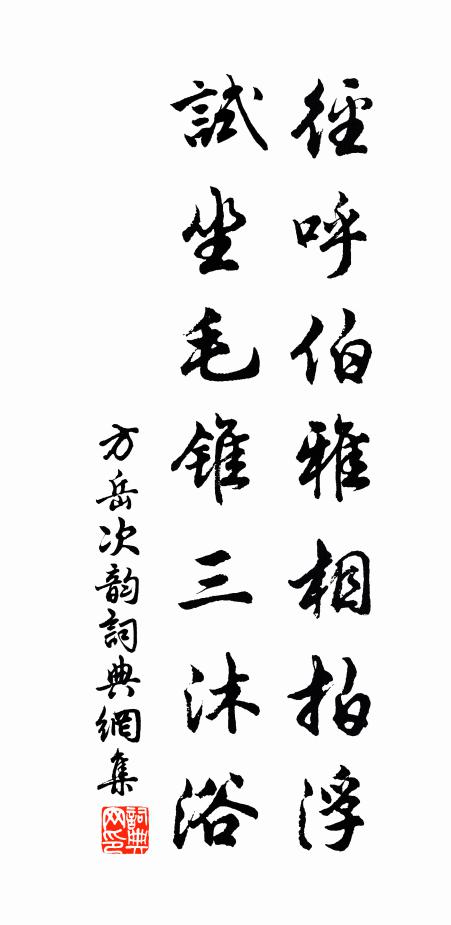 徑呼伯雅相拍浮
試坐毛錐三沐浴
方岳次韵詞典網集
詞典网印